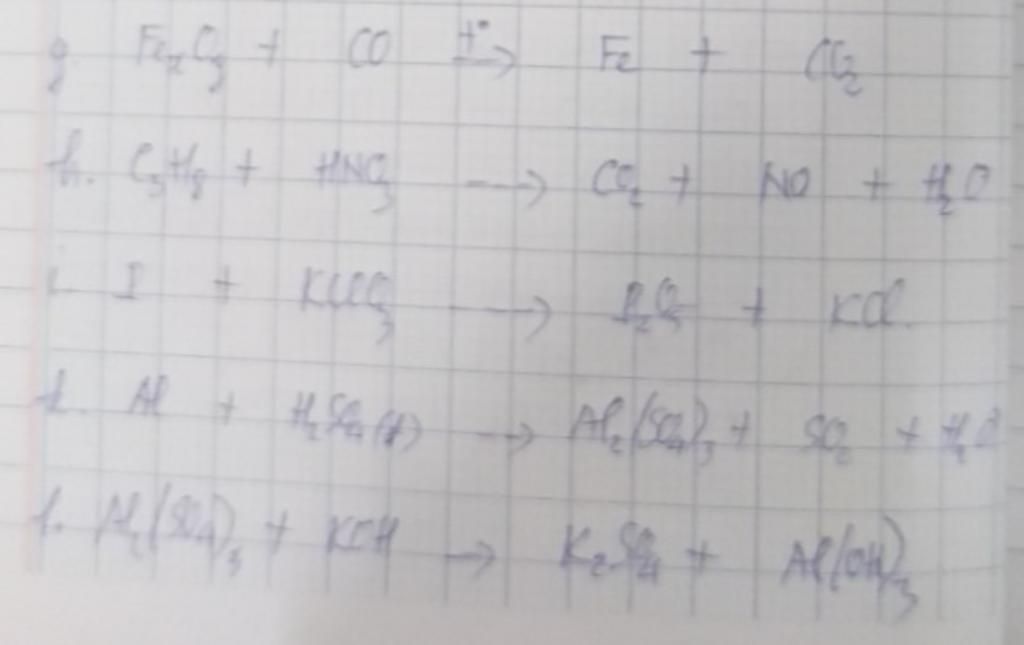 g. Fe2O3 + CO t°→ Fe + CO2
h. C3H8 + HNO3 → CO2 + NO + H2O
i. + KClO3 → P2O5 + KCl.
k. Al + H2SO4(đ) → Al2(SO4)3 + SO2 + H2O
l. Al2(SO4)3 + KOH → K2SO4 + Al(OH)3